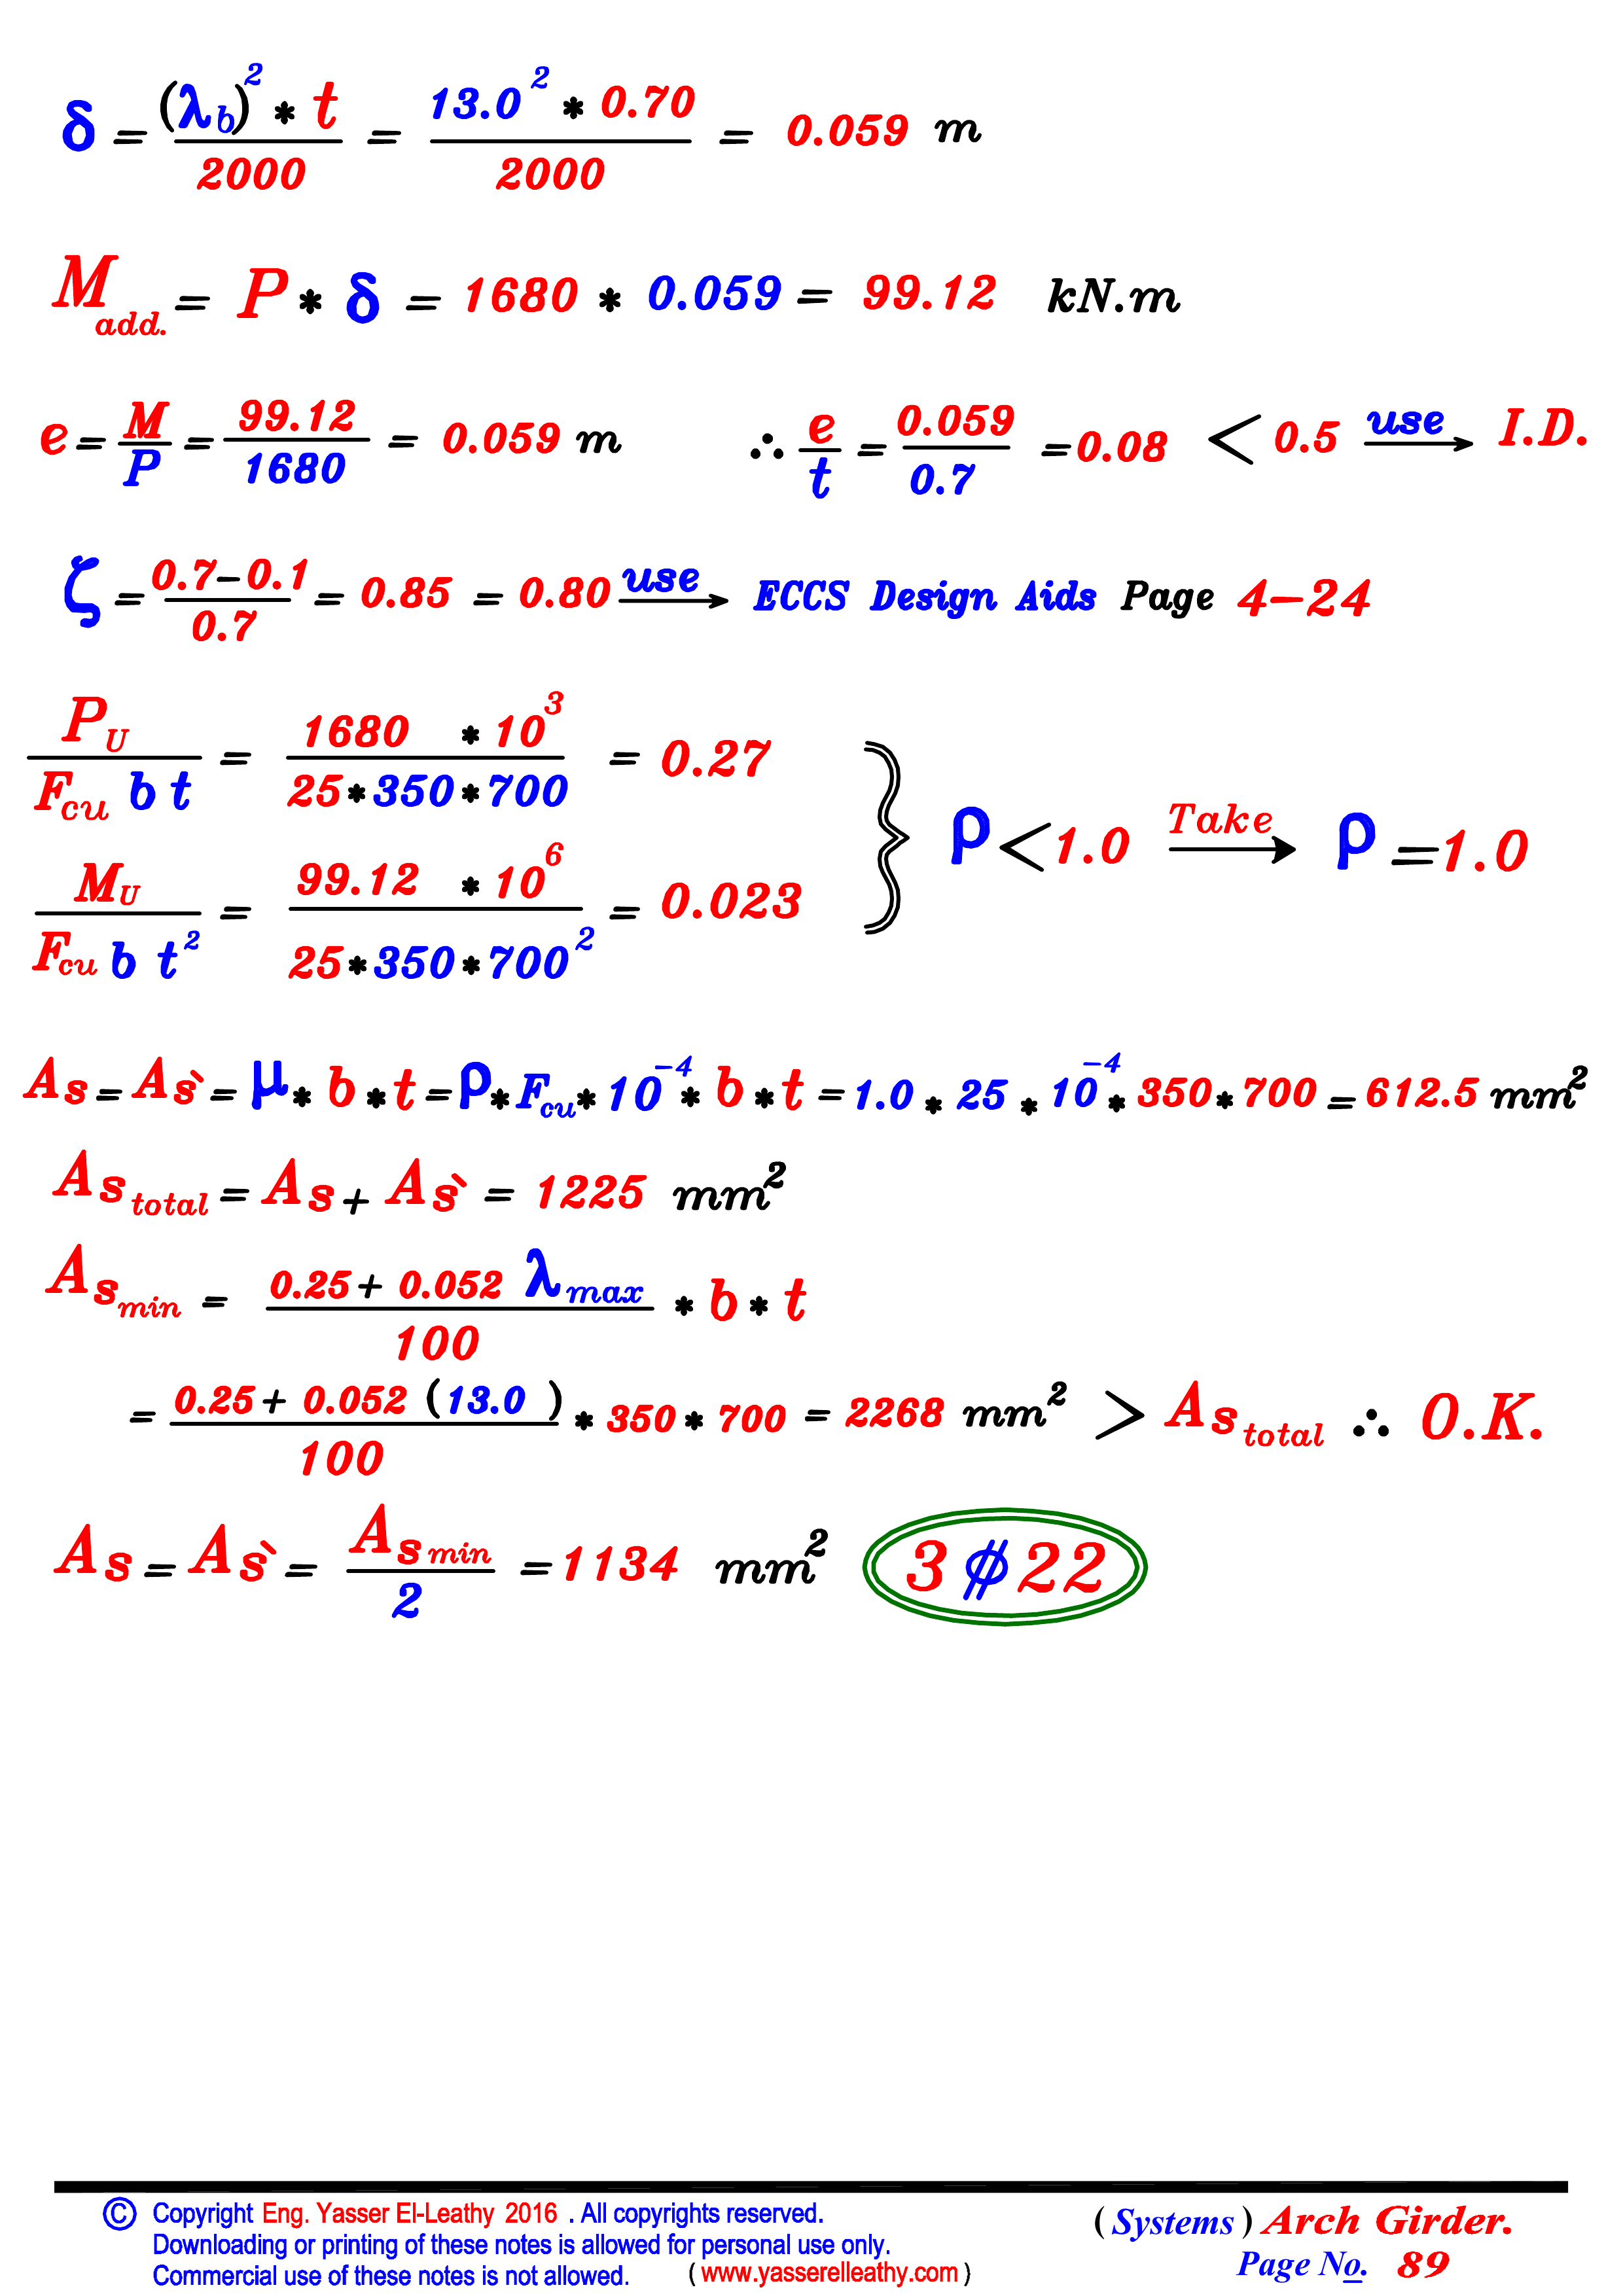 δ = (λb)² * t / 2000 = 13.0² * 0.70 / 2000 = 0.059 m
M add. = P * δ = 1680 * 0.059 = 99.12 kN.m
e = M / P = 99.12 / 1680 = 0.059 m ∴ e / t = 0.059 / 0.7 = 0.08 < 0.5 use → I.D.
ζ = 0.7-0.1 / 0.7 = 0.85 = 0.80 use → ECCS Design Aids Page 4-24
P U / F cu b t = 1680 * 10³ / 25*350*700 = 0.27
ρ < 1.0 Take → ρ = 1.0
M U / F cu b t² = 99.12 * 10⁶ / 25*350*700² = 0.023
As = As` = μ * b * t = ρ * F cu * 10⁻⁴ * b * t = 1.0 * 25 * 10⁻⁴ * 350 * 700 = 612.5 mm²
As total = As + As` = 1225 mm²
As min = 0.25 + 0.052 λ max / 100 * b * t
= 0.25 + 0.052 (13.0 ) / 100 * 350 * 700 = 2268 mm² > As total ∴ O.K.
As = As` = As min / 2 = 1134 mm² 3 ⏀ 22
© Copyright Eng. Yasser El-Leathy 2016 . All copyrights reserved.
Downloading or printing of these notes is allowed for personal use only.
Commercial use of these notes is not allowed. ( www.yasserelleathy.com )
( Systems ) Arch Girder.
Page No. 89